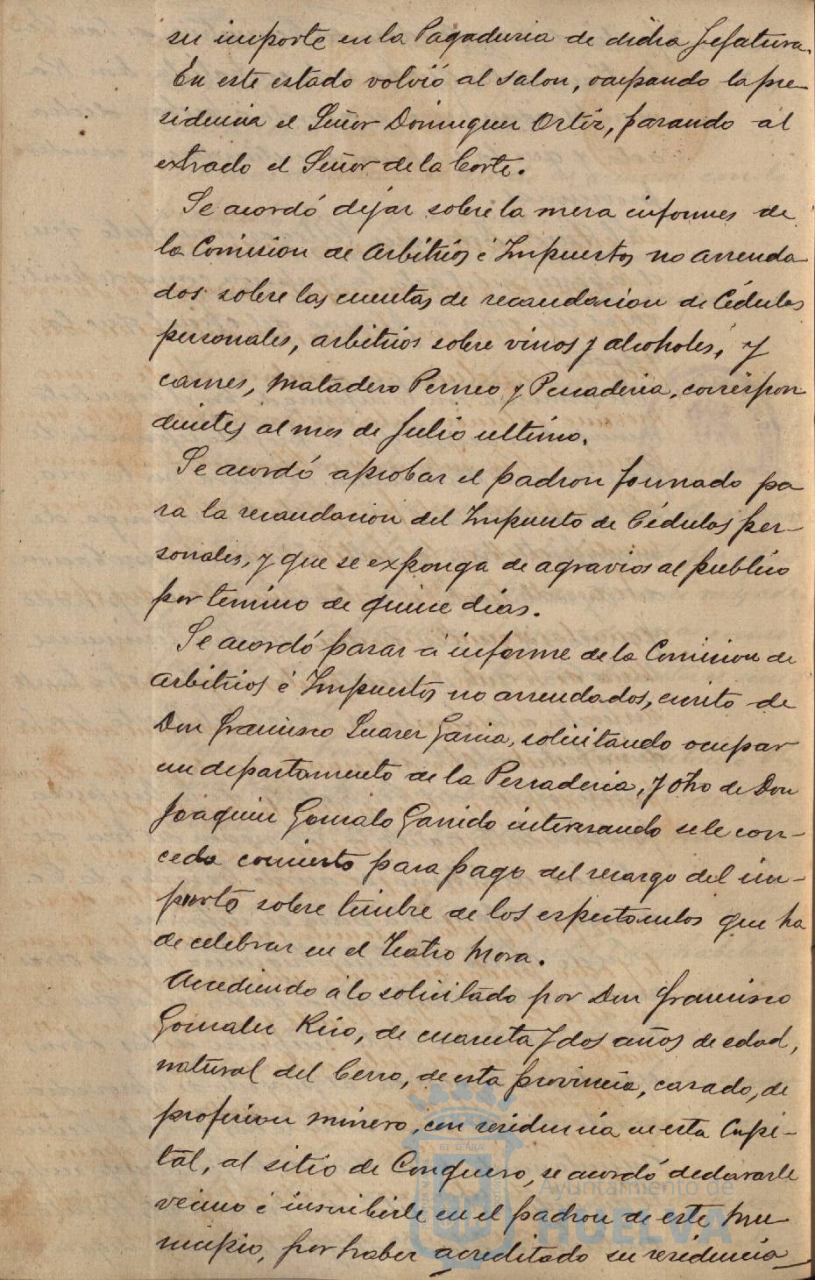 su importe en la Pagaduria de dicha Jefatura.
En este estado volvió al salon, ocupando la pre-
sidencia el Señor Dominguez Ortiz, pasando al
estrado el Señor de la Corte.
Se acordó dejar sobre la mesa informes de
la Comision de Arbitrios é Impuestos no arrenda-
dos sobre las cuentas de recaudacion de Cédulas
personales, arbitrios sobre vinos y alcoholes, y
carnes, Matadero Perneo y Pescaderia, correspon
dientes al mes de Julio ultimo.
Se acordó aprobar el padron formado pa
ra la recaudacion del Impuesto de Cédulas per-
sonales, y que se exponga de agravios al publico
por termino de quince dias.
Se acordó pasar á informe de la Comision de
arbitrios é Impuestos no arrendados, escrito de
Don Francisco Suarez Garcia, solicitando ocupar
un departamento de la Pescaderia, y otro de Don
Joaquin Gonzalo Garrido interesando se le con-
ceda concierto para pago del recargo del im-
puesto sobre timbre de los espectaculos que ha
de celebrar en el Teatro Mora.
Accediendo á lo solicitado por Don Francisco
Gonzalez Rico, de cuarenta y dos años de edad,
natural del Cerro, de esta provincia, casado, de
profesion minero, con residencia en esta Capi-
tal, al sitio de Conquero, se acordó declararle
vecino é inscribirle en el padron de este Mu-
nicipio, por haber acreditado su residencia
Ayuntamiento de
HUELVA